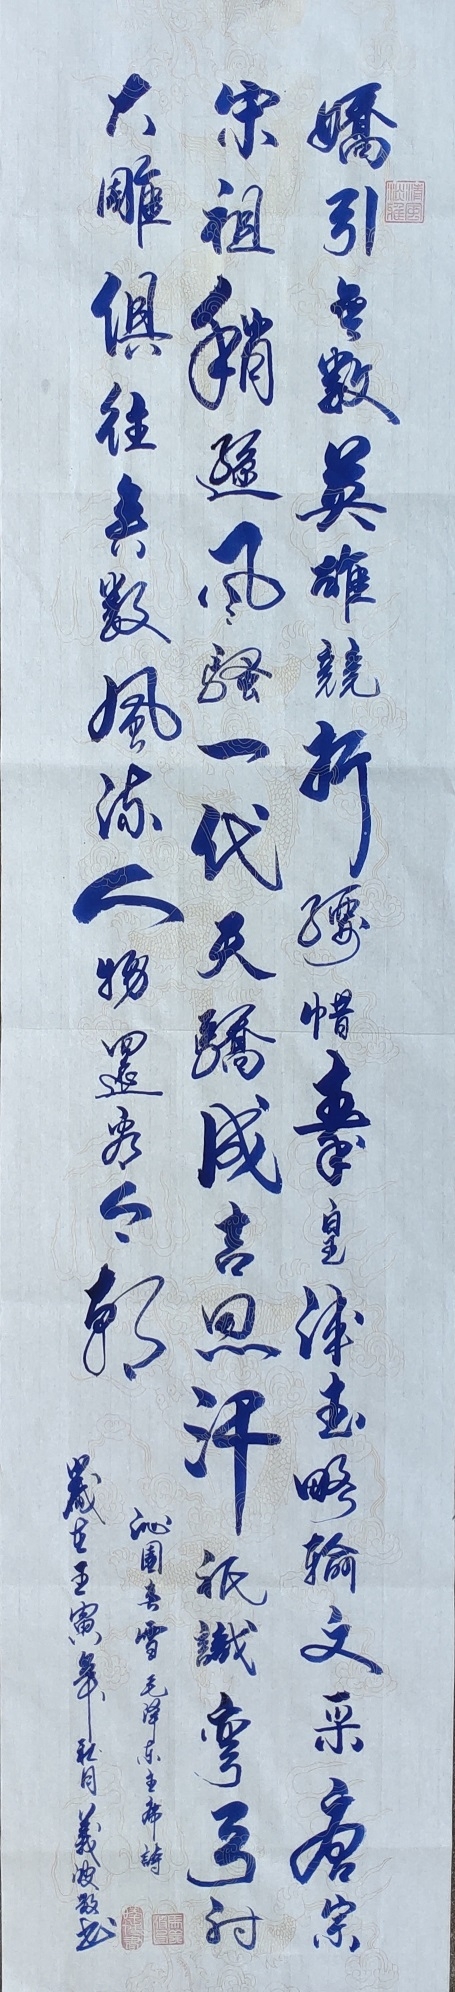 嬌引無數英雄競折腰惜秦皇漢武略輸文采唐宗
宋祖稍遜風騷一代天驕成吉思汗祇識彎弓射
大雕俱往矣數風流人物還看今朝
沁園春雪毛澤東主席詩
歲在壬寅年秋月義波敬書